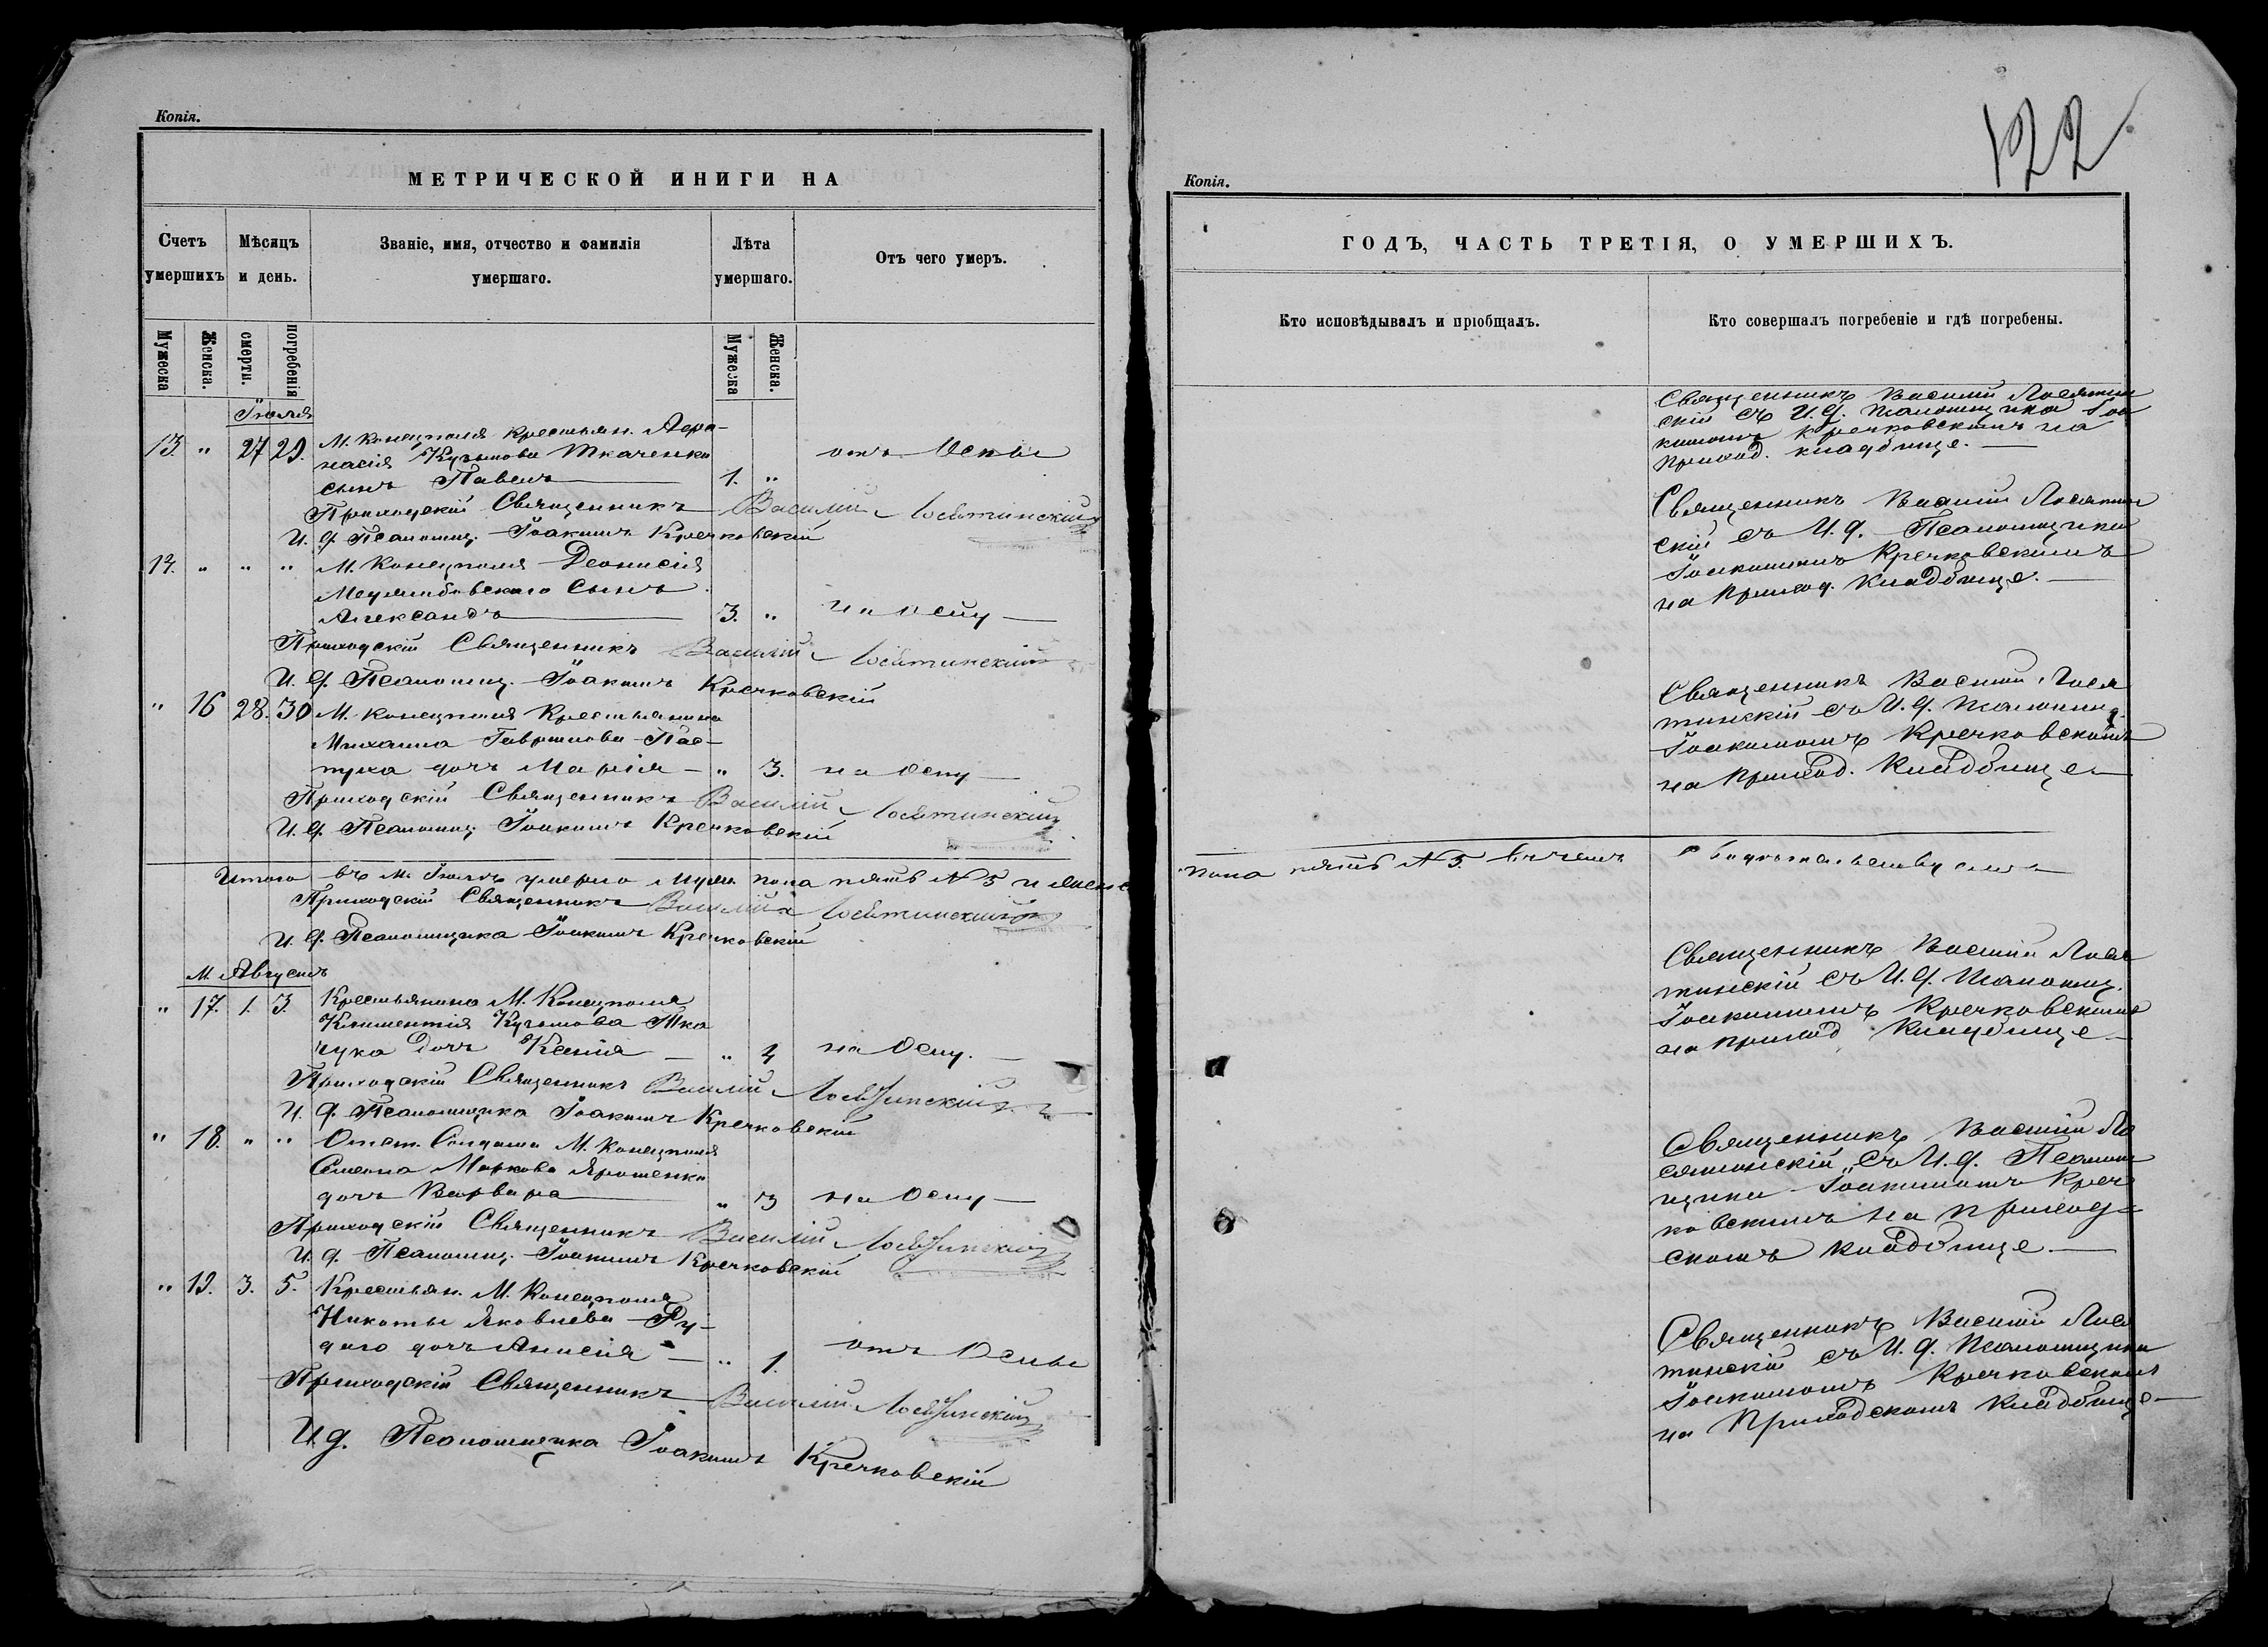 Копія.
МЕТРИЧЕСКОЙ ИНИГИ НА
Счетъ умершихъ
Мѣсяцъ и день.
Званіе, имя, отчество и фамилія умершаго.
Лѣта умершаго.
Отъ чего умеръ.
Мужеска
Женска.
смерти.
погребенія
Мужеска
Женска.
Іюля
13. " 27 29. М. Конецполя крестьян. Аѳа-
насія Кузьмова Ткаченка отъ Оспы
сынъ Павелъ 1. "
Приходскій Священникъ Василій Лосятинскій
И. д. Псаломщ. Іоакимъ Кречковскій
14. " " " М. Конецполя Деонисія
сынъ
Александъ 3. " на оспу
Приходскій Священникъ Василій Лосятинскій
И. д. Псаломщ. Іоакимъ Кречковскій
" 16 28. 30 М. Конецполя Крестьянина
Михаила Гаврилова Пас-
туха дочь Марія " 3. на оспу
Приходскій Священникъ Василій Лосятинскій
И. д. Псаломщ. Іоакимъ Кречковскій
Итого въ м. Іюлѣ умерло муж. пола пять № 5 и женс
Приходскій Священникъ Василій Лосятинскій
И. д. Псаломщика Іоакимъ Кречковскій
М. Августъ
" 17. 1. 3. Крестьянина М. Конецполя
Климентія Кузьмова Тка
чука дочь Ксенія " 4 на Оспу.
Приходскій Священникъ Василій Лосятинскій
И. д. Псаломщика Іоакимъ Кречковскій
" 18. " " Отст. Солдата М. Конецполя
Семена Маркова Ярошенка
дочь Варвара " 3 на Оспу
Приходскій Священникъ Василій Лосятинскій
И. д. Псаломщ. Іоакимъ Кречковскій
" 19. 3. 5. Крестьян. М. Конецполя
Никиты Яковлева Ру-
даго дочь Анисія " 1. отъ Оспы
Приходскій Священникъ Василій Лосятинскій
И д. Псаломщика Іоакимъ Кречковскій
122
Копія.
ГОДЪ, ЧАСТЬ ТРЕТІЯ, О УМЕРШИХЪ.
Кто исповѣдывалъ и пріобщалъ.
Кто совершалъ погребеніе и гдѣ погребены.
Священникъ Василій Лосятин
скій съ И. д. псаломщика Іоа
кимомъ Кречковскимъ на
приход. кладбище.
Священникъ Василій Лосятин
скій съ И. д. Псаломщика
Іоакимомъ Кречковскимъ
на приход. Кладбище.
Священникъ Василій Лося
тинскій съ И. д. псаломщ.
Іоакимомъ Кречковскимъ
на приход. Кладбище
пола пять № 5. въ чемъ
Священникъ Василій Лося
тинскій съ И. д. псаломщ.
Іоакимомъ Кречковскимъ
на приход Кладбище
Священникъ Василій Ло
сятинскій съ И. д. Псалом
щика Іоакимомъ Креч
ковскимъ на приход-
скомъ кладбище.
Священникъ Василій Лося
тинскій съ И. д. псаломщика
Іоакимомъ Кречковскимъ
на приходскомъ Кладбище